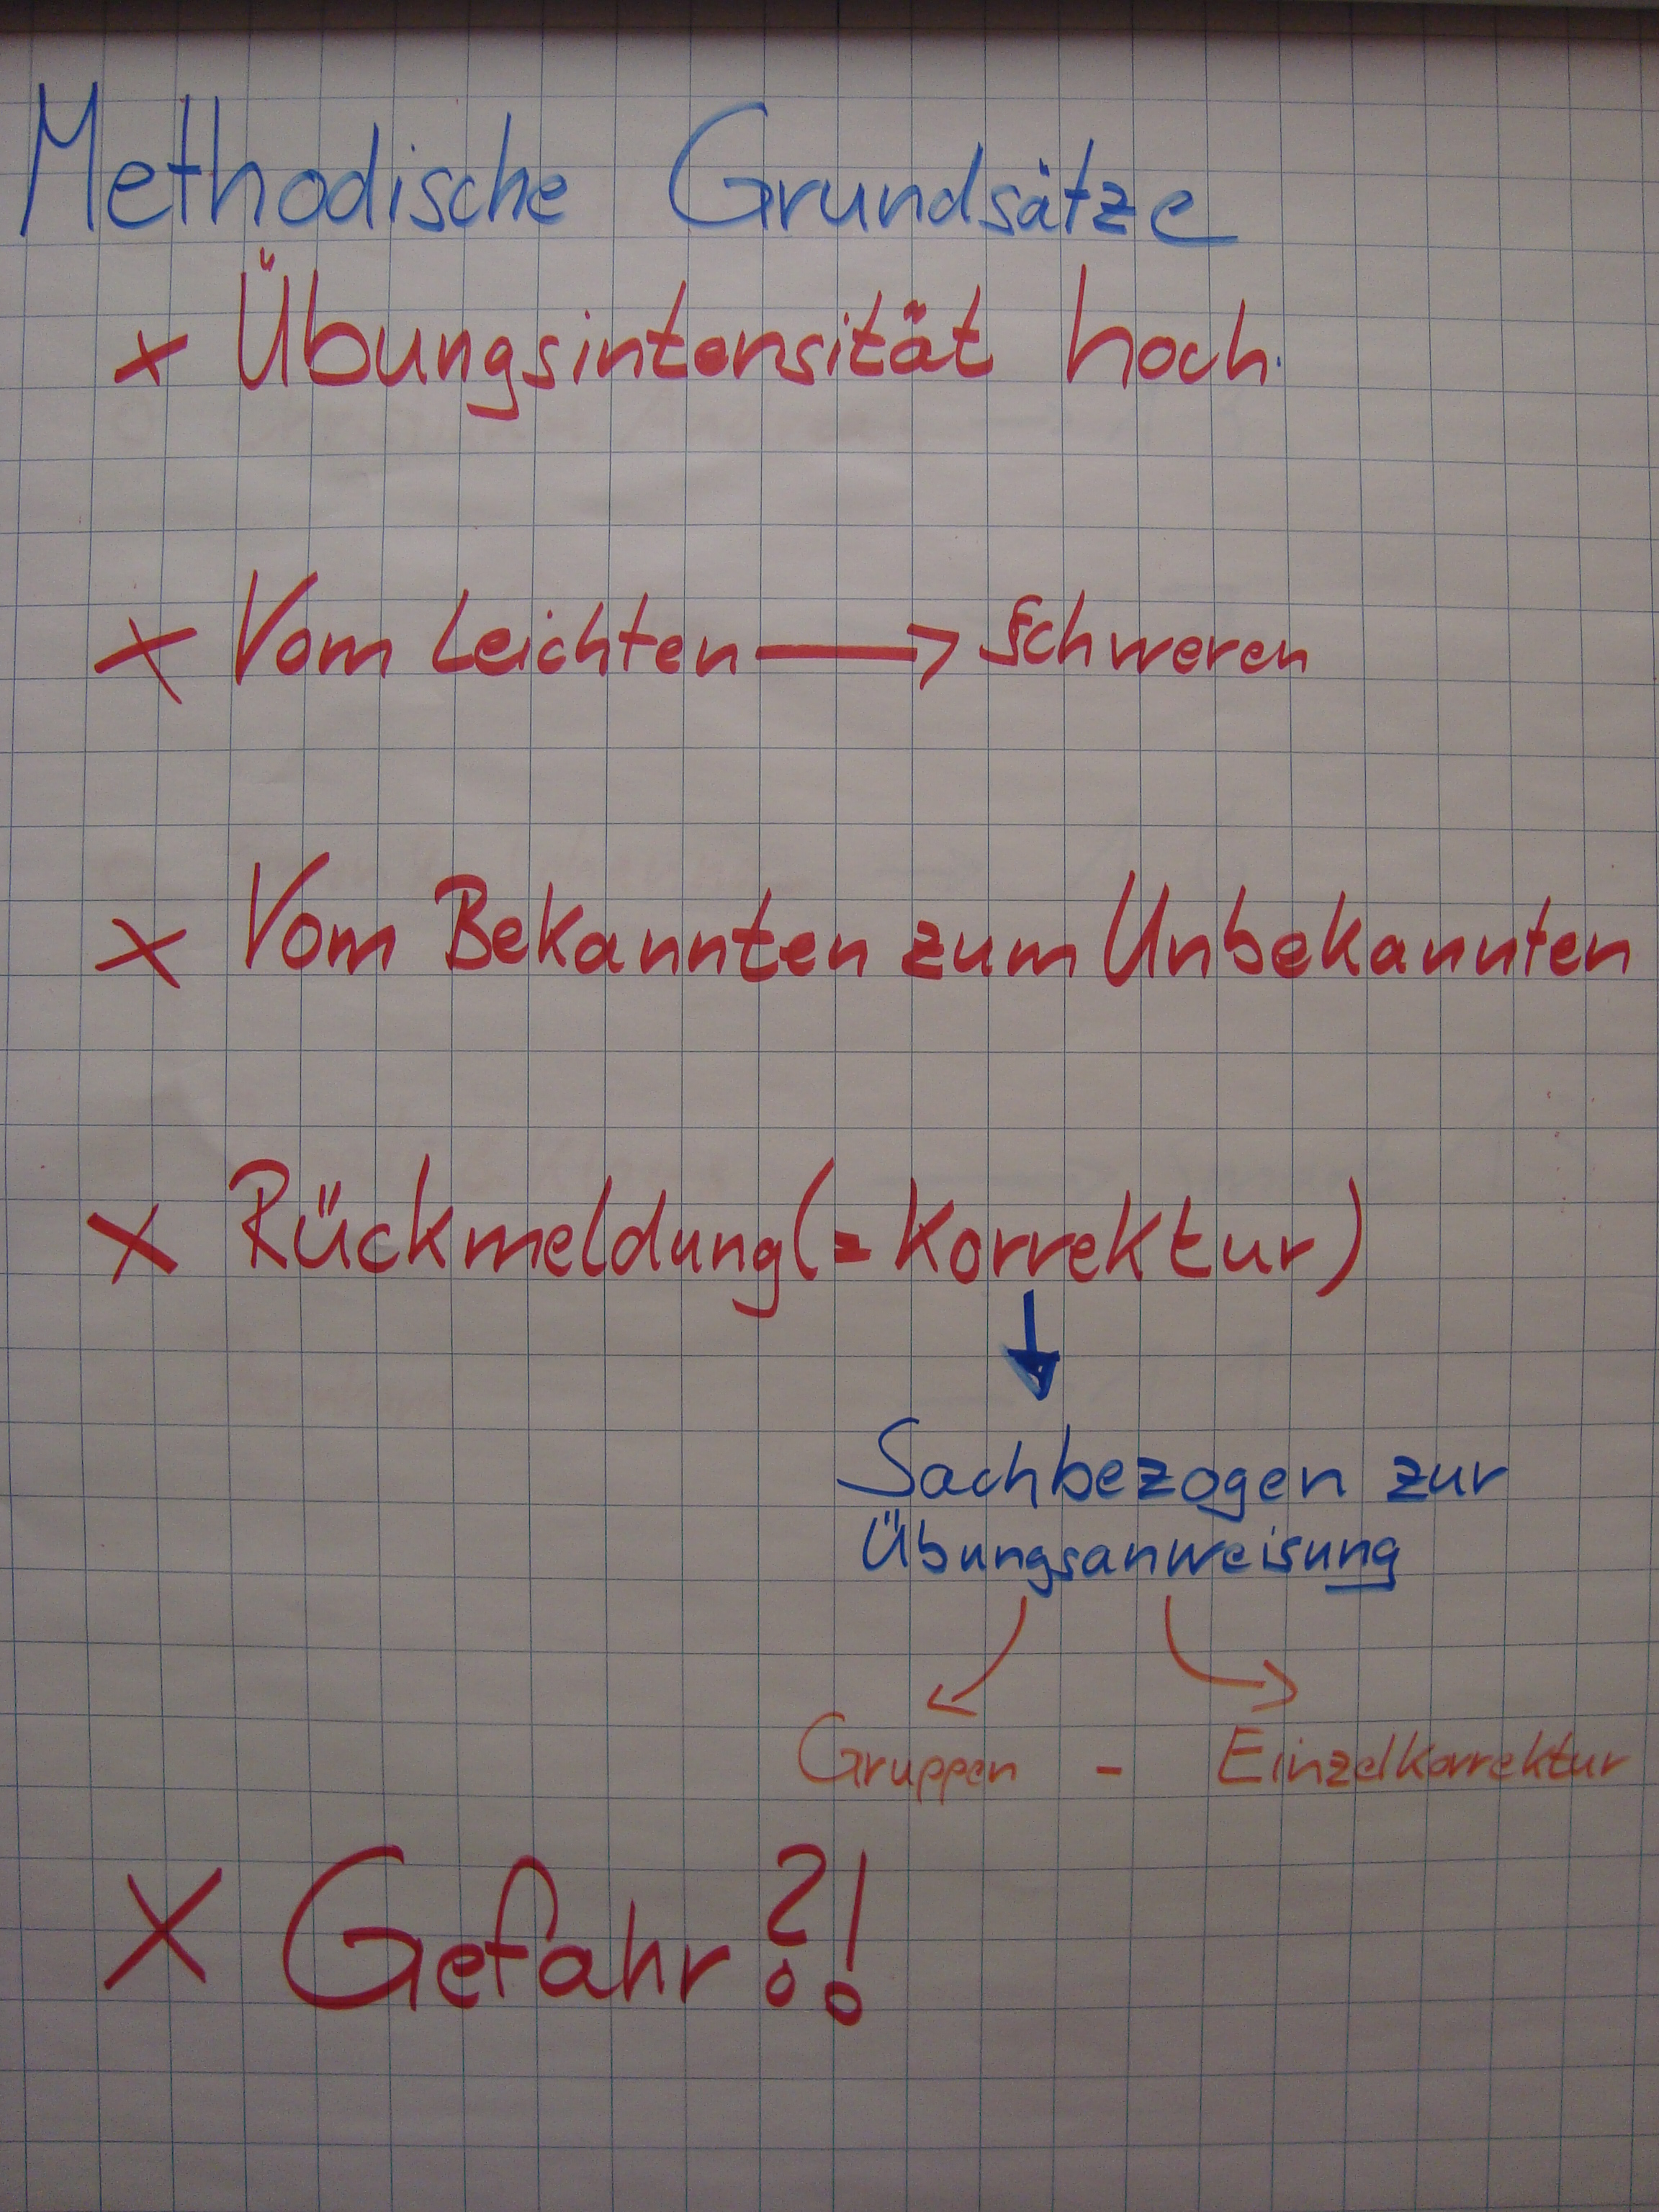 Methodische Grundsätze
x Übungsintensität hoch.
x Vom Leichten → Schweren
x Vom Bekannten zum Unbekannten
x Rückmeldung (= Korrektur)
↓
Sachbezogen zur
Übungsanweisung
Gruppen - Einzelkorrektur
x Gefahr ?!